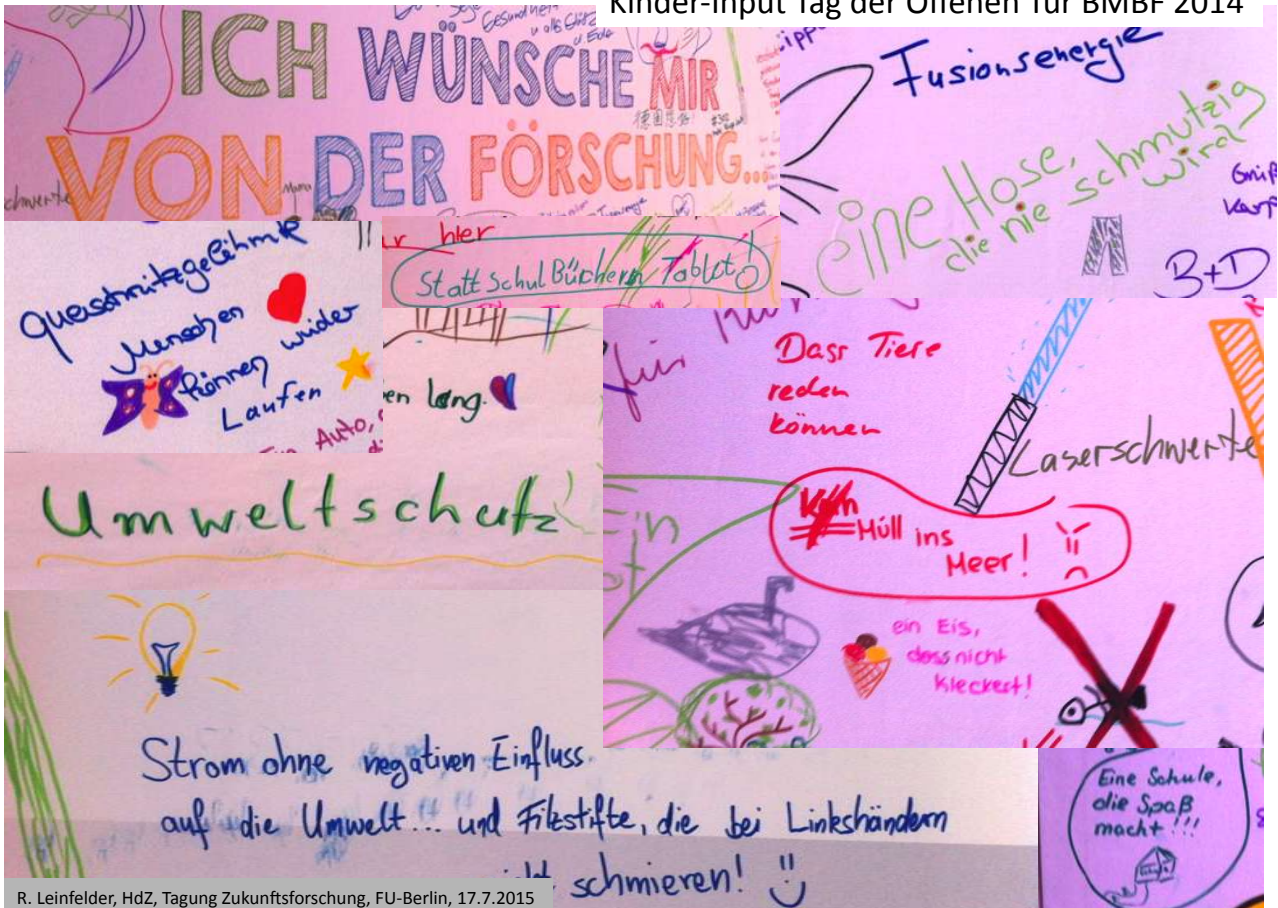 Kinder-Input Tag der Offenen Tür BMBF 2014
Gesundheit
ICH WÜNSCHE MIR
VON DER FORSCHUNG...
Mama
Fusionsenergie
eine Hose,
die nie schmutzig
wird
B+D
hier
Statt SchulBüchern Tablet!
Querschnittsgelähmte
Menschen
können wieder
Laufen
Auto,
en lang.
Umweltschutz
für
Dass Tiere
reden
können
Laserschwerter
Kein
Müll ins
Meer!
ein Eis,
dass nicht
kleckert!
Strom ohne negativen Einfluss
auf die Umwelt... und Filzstifte, die bei Linkshändern
schmieren!
Eine Schule,
die Spaß
macht!!!
R. Leinfelder, HdZ, Tagung Zukunftsforschung, FU-Berlin, 17.7.2015